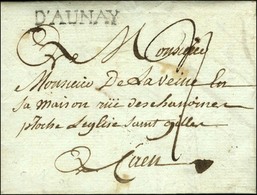 D'AUNAY
A Monsieur
Monsieur De La veine En
sa maison rüe des chanoines
proche Leglise saint gilles
A Caen